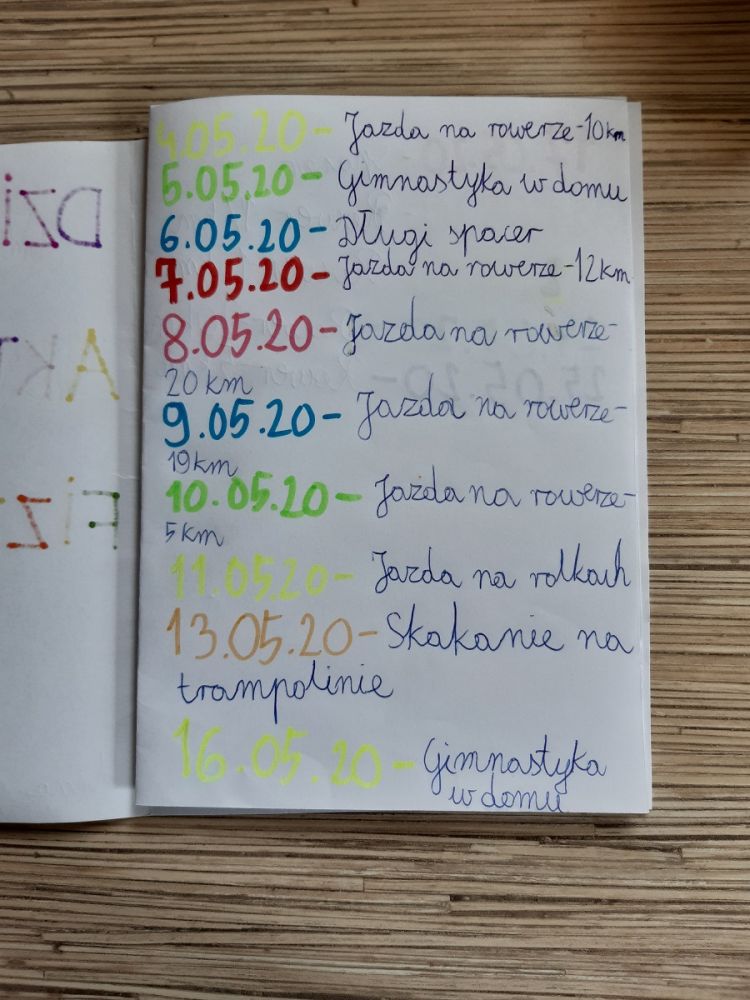 4.05.20- Jazda na rowerze-10km
5.05.20- Gimnastyka w domu
6.05.20- Długi spacer
7.05.20- Jazda na rowerze-12km
8.05.20- Jazda na rowerze-
20 km
9.05.20- Jazda na rowerze-
19km
10.05.20- Jazda na rowerze-
5km
11.05.20- Jazda na rolkach
13.05.20- Skakanie na
trampolinie
16.05.20- Gimnastyka
w domu